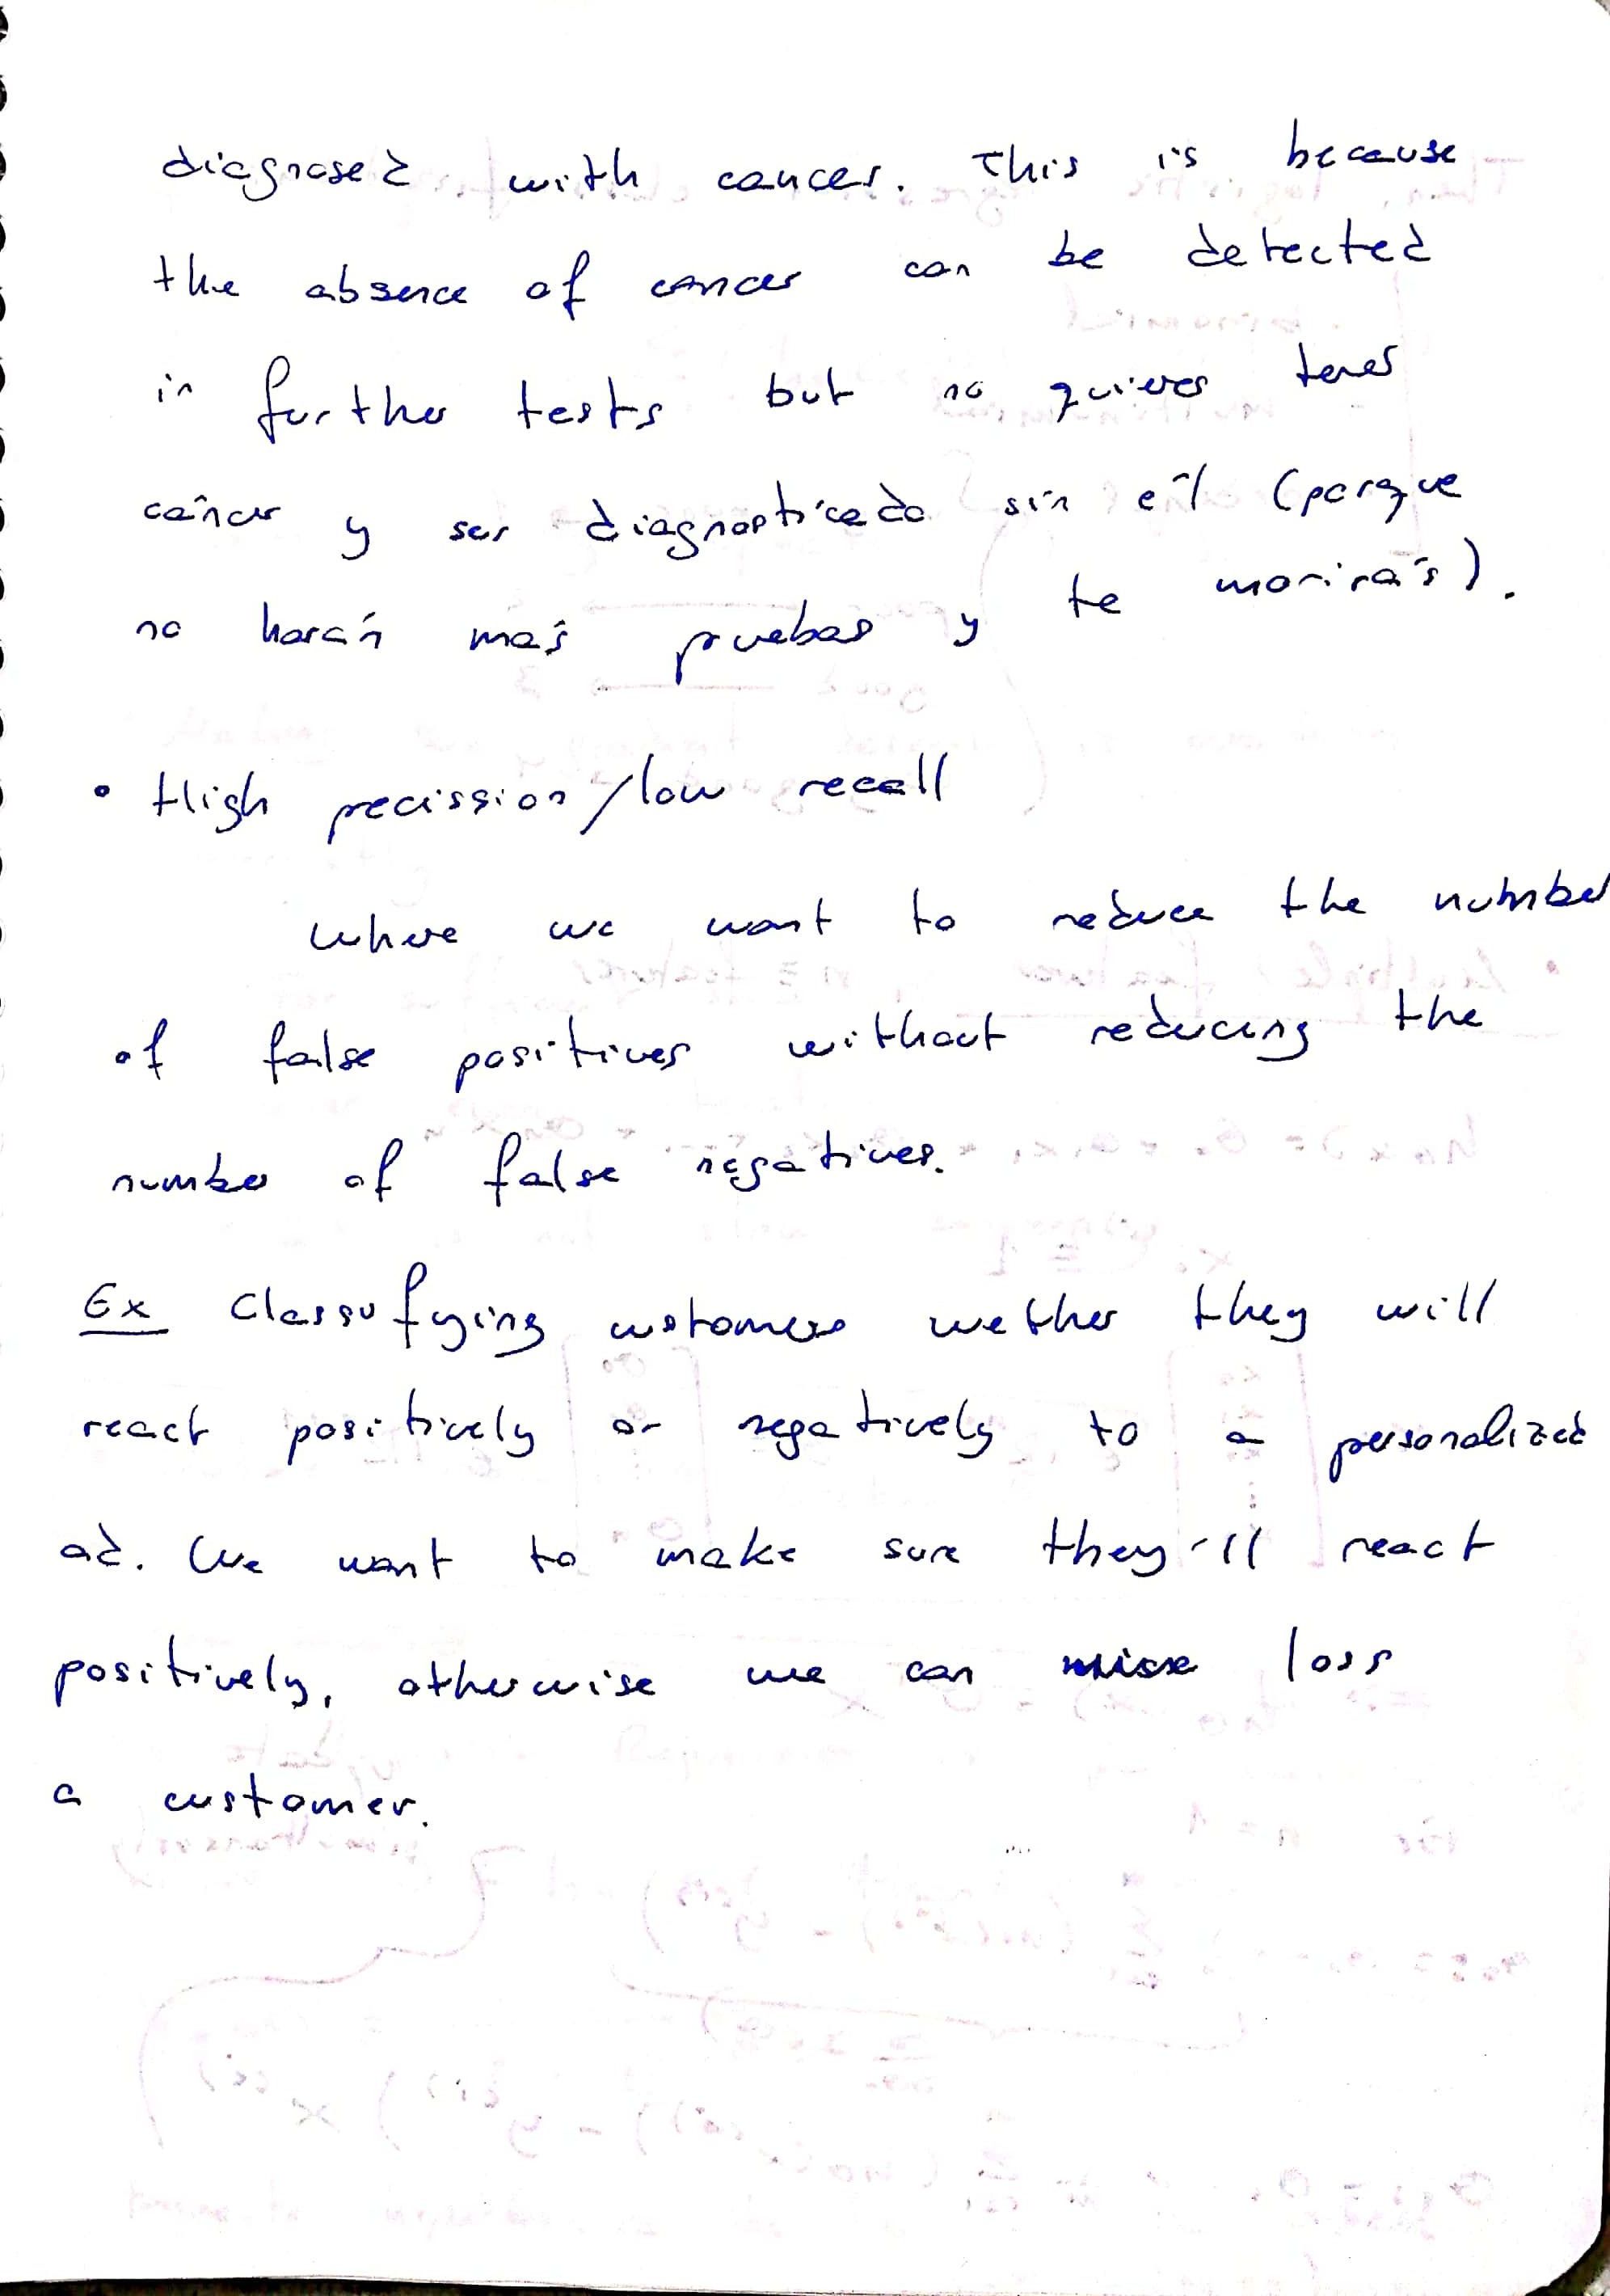 diagnosed with cancer. This is because
the absence of cancer can be detected
in further tests but no quieres tener
cáncer y ser diagnosticado sin él (porque
no harán más pruebas y te morirás).
• High precission/low recall
Where we want to reduce the number
of false positives without reducing the
number of false negatives.
Ex Classufying customers wether they will
react positively or negatively to a personalized
ad. We want to make sure they'll react
positively, otherwise we can loss
a customer.